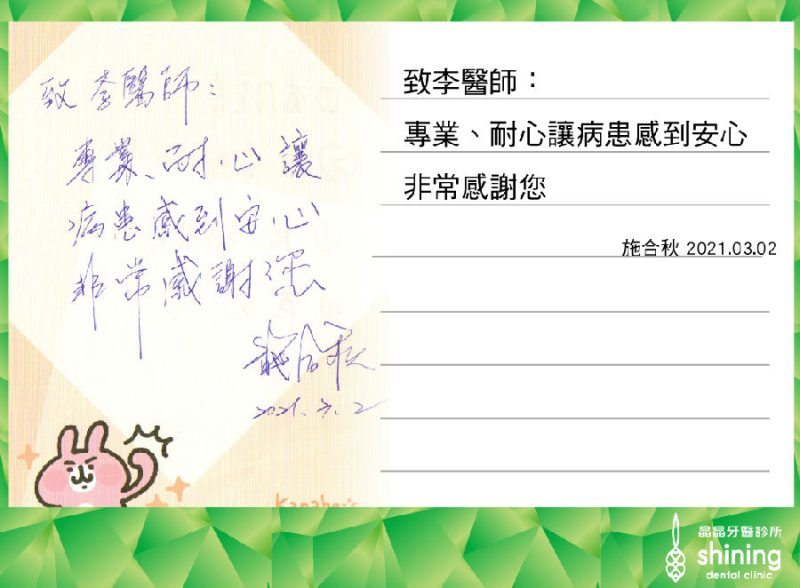 致李醫師：
專業、耐心讓
病患感到安心
非常感謝您
施合秋
2021.3.2
致李醫師：
專業、耐心讓病患感到安心
非常感謝您
施合秋 2021.03.02
晶晶牙醫診所
shining
dental clinic